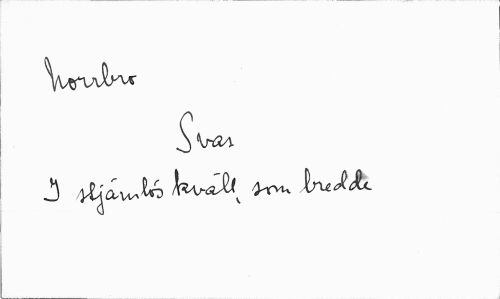 Norrbro
Svar
I stjärnlös kväll, som bredde